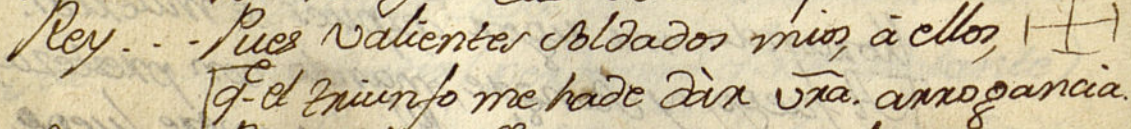 Rey... Pues valientes soldados mios, à ellos,
q.e el triunfo me hade dàr vra. arrogancia.